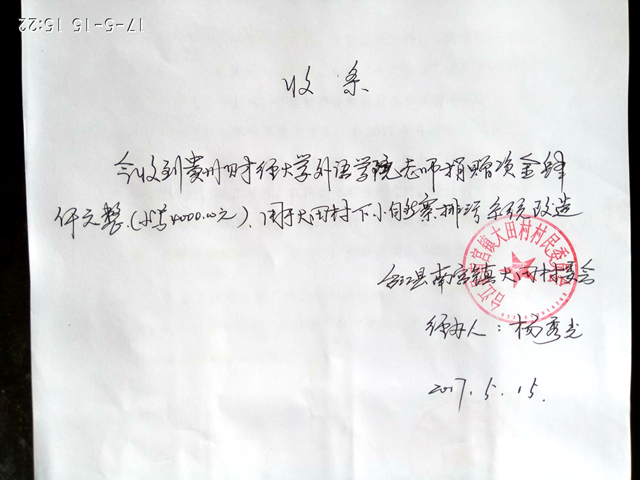 17-5-15 15:22
收条
今收到贵州财经大学外语学院老师捐赠资金肆
仟元整.(小写4000.00元).用于大田村下小自然寨排污系统改造
台江县南宫镇大田村村民委员会
台江县南宫镇大田村委会
经办人:杨秀光
2017.5.15.